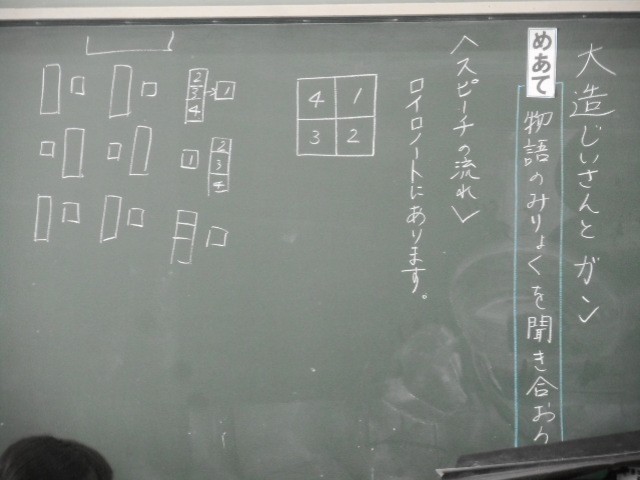 大造じいさんとガン
めあて 物語のみりょくを聞き合おう
＜スピーチの流れ＞
ロイロノートにあります。
4 1
3 2
2
3 → 1
4
2
1 3
4